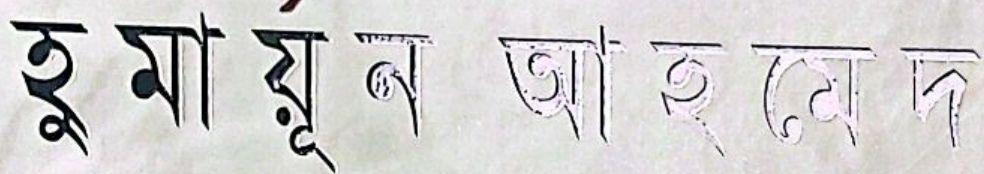 হুমায়ূন আহমেদ